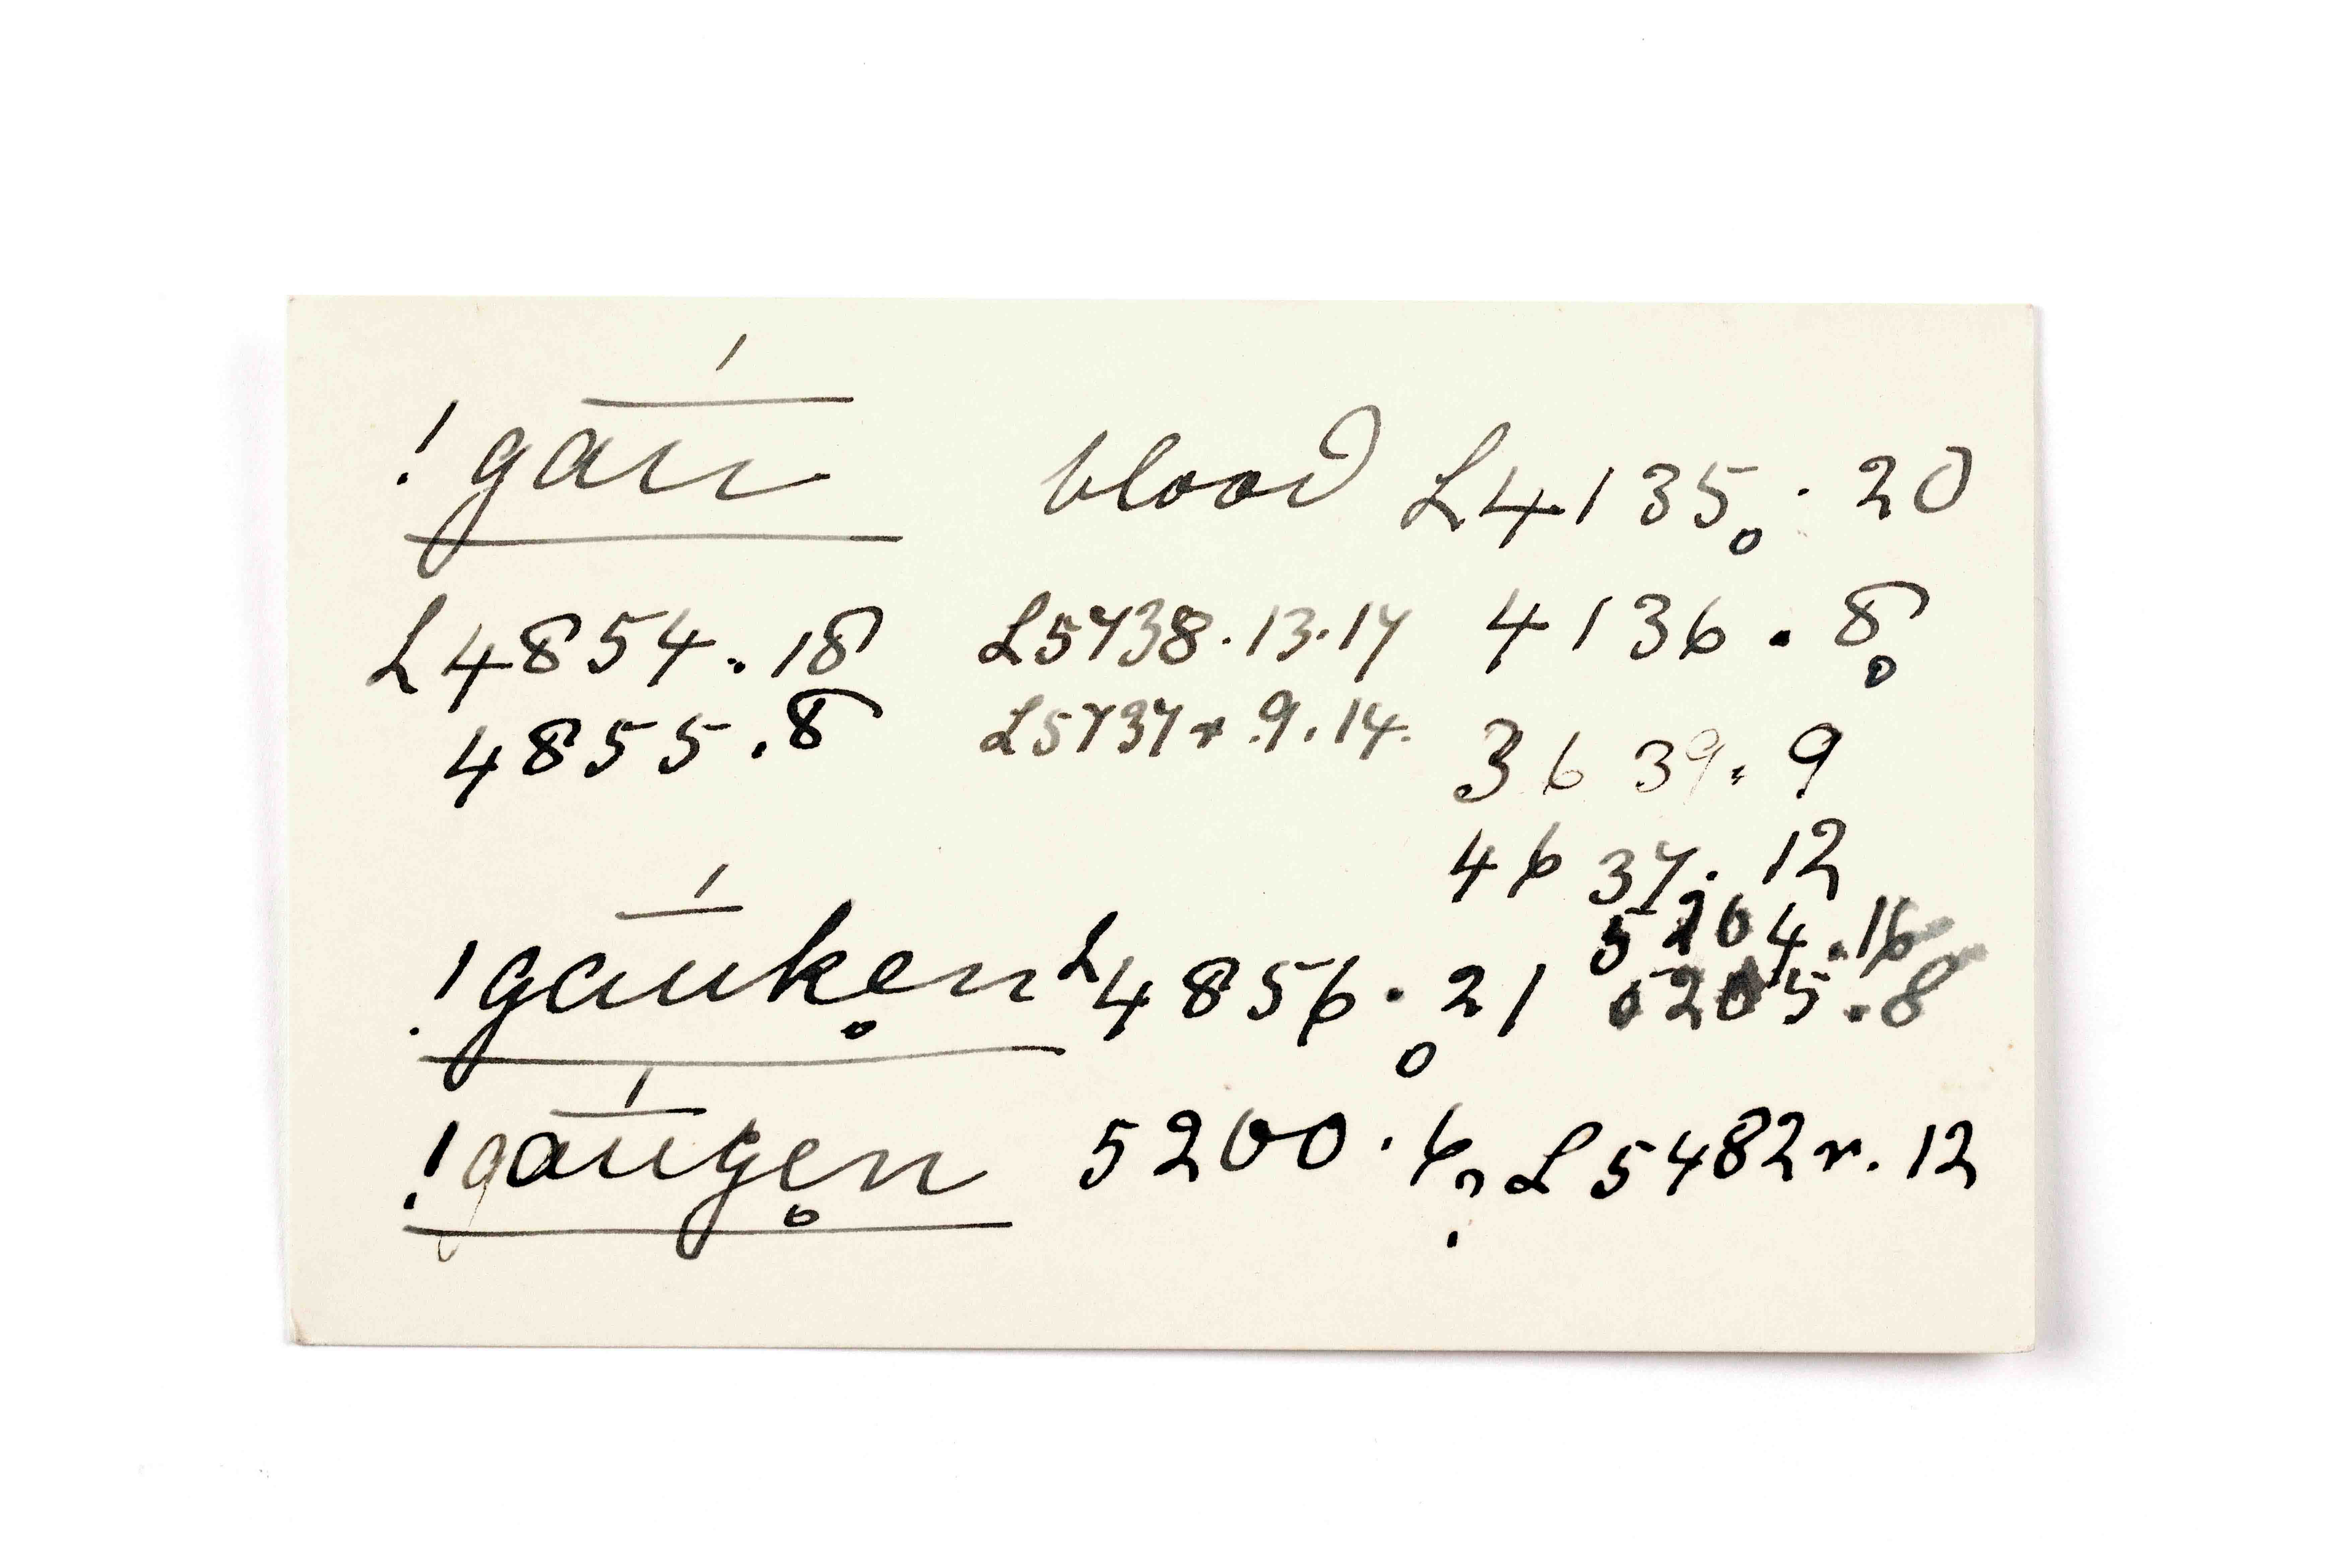 !gau̅́ blood L4135. 20
L4854.18 L5738.13.17 4136.8
4855.8 L5737r.9.14. 3639.9
4637.12
5204.16
!gau̅́ken L4856.21 5205.8
!gau̅́gen 5200.6 L5482r.12